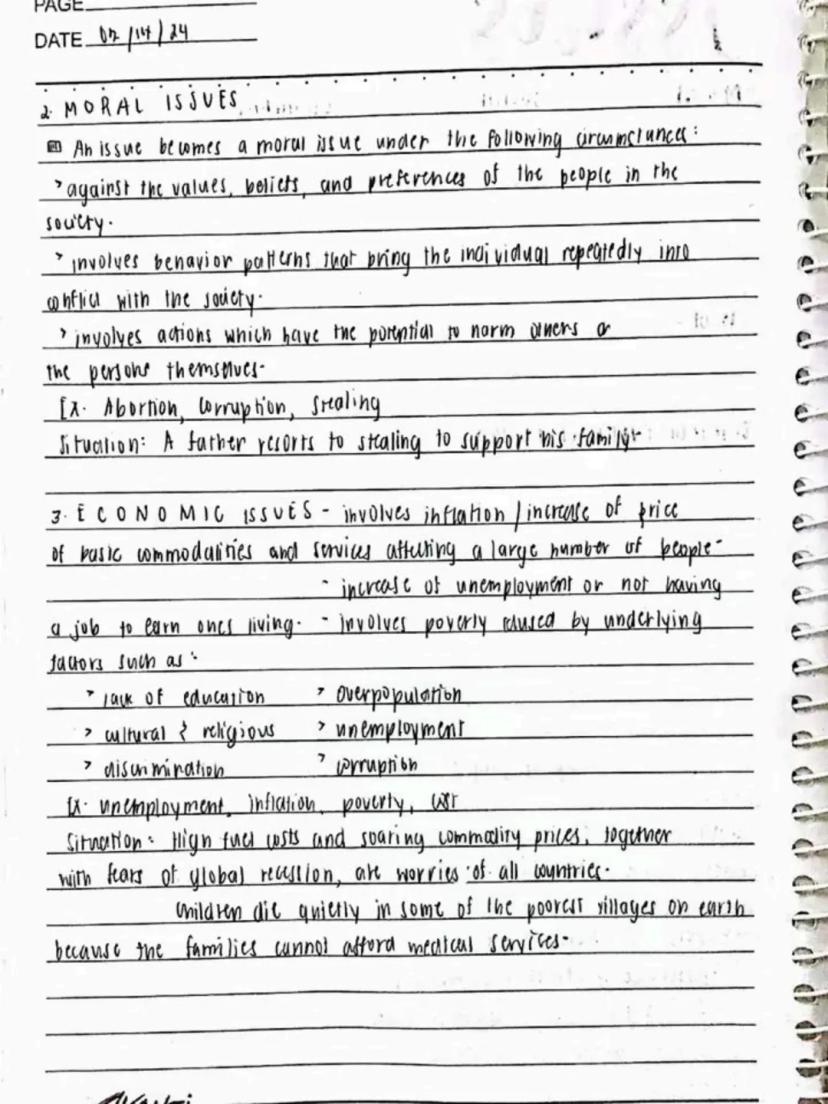 PAGE
DATE 02/14/24
2. MORAL ISSUES
An issue becomes a moral issue under the following circumstances:
> against the values, beliefs, and preferences of the people in the
society.
> involves behavior patterns that bring the individual repeatedly into
conflict with the society.
> involves actions which have the potential to harm others or
the persons themselves.
Ex. Abortion, Corruption, Stealing
Situation: A father resorts to stealing to support his family.
3. ECONOMIC ISSUES - involves inflation / increase of price
of basic commodalities and services affecting a large number of people-
- increase of unemployment or not having
a job to earn ones living. - involves poverty caused by underlying
factors such as:
> lack of education > overpopulation
> cultural & religious > unemployment
> discrimination > corruption
Ex. unemployment, inflation, poverty,
Situation: High fuel costs and soaring commodity prices, together
with fears of global recession, are worries of all countries.
Children die quietly in some of the poorest villages on earth
because the families cannot afford medical services.